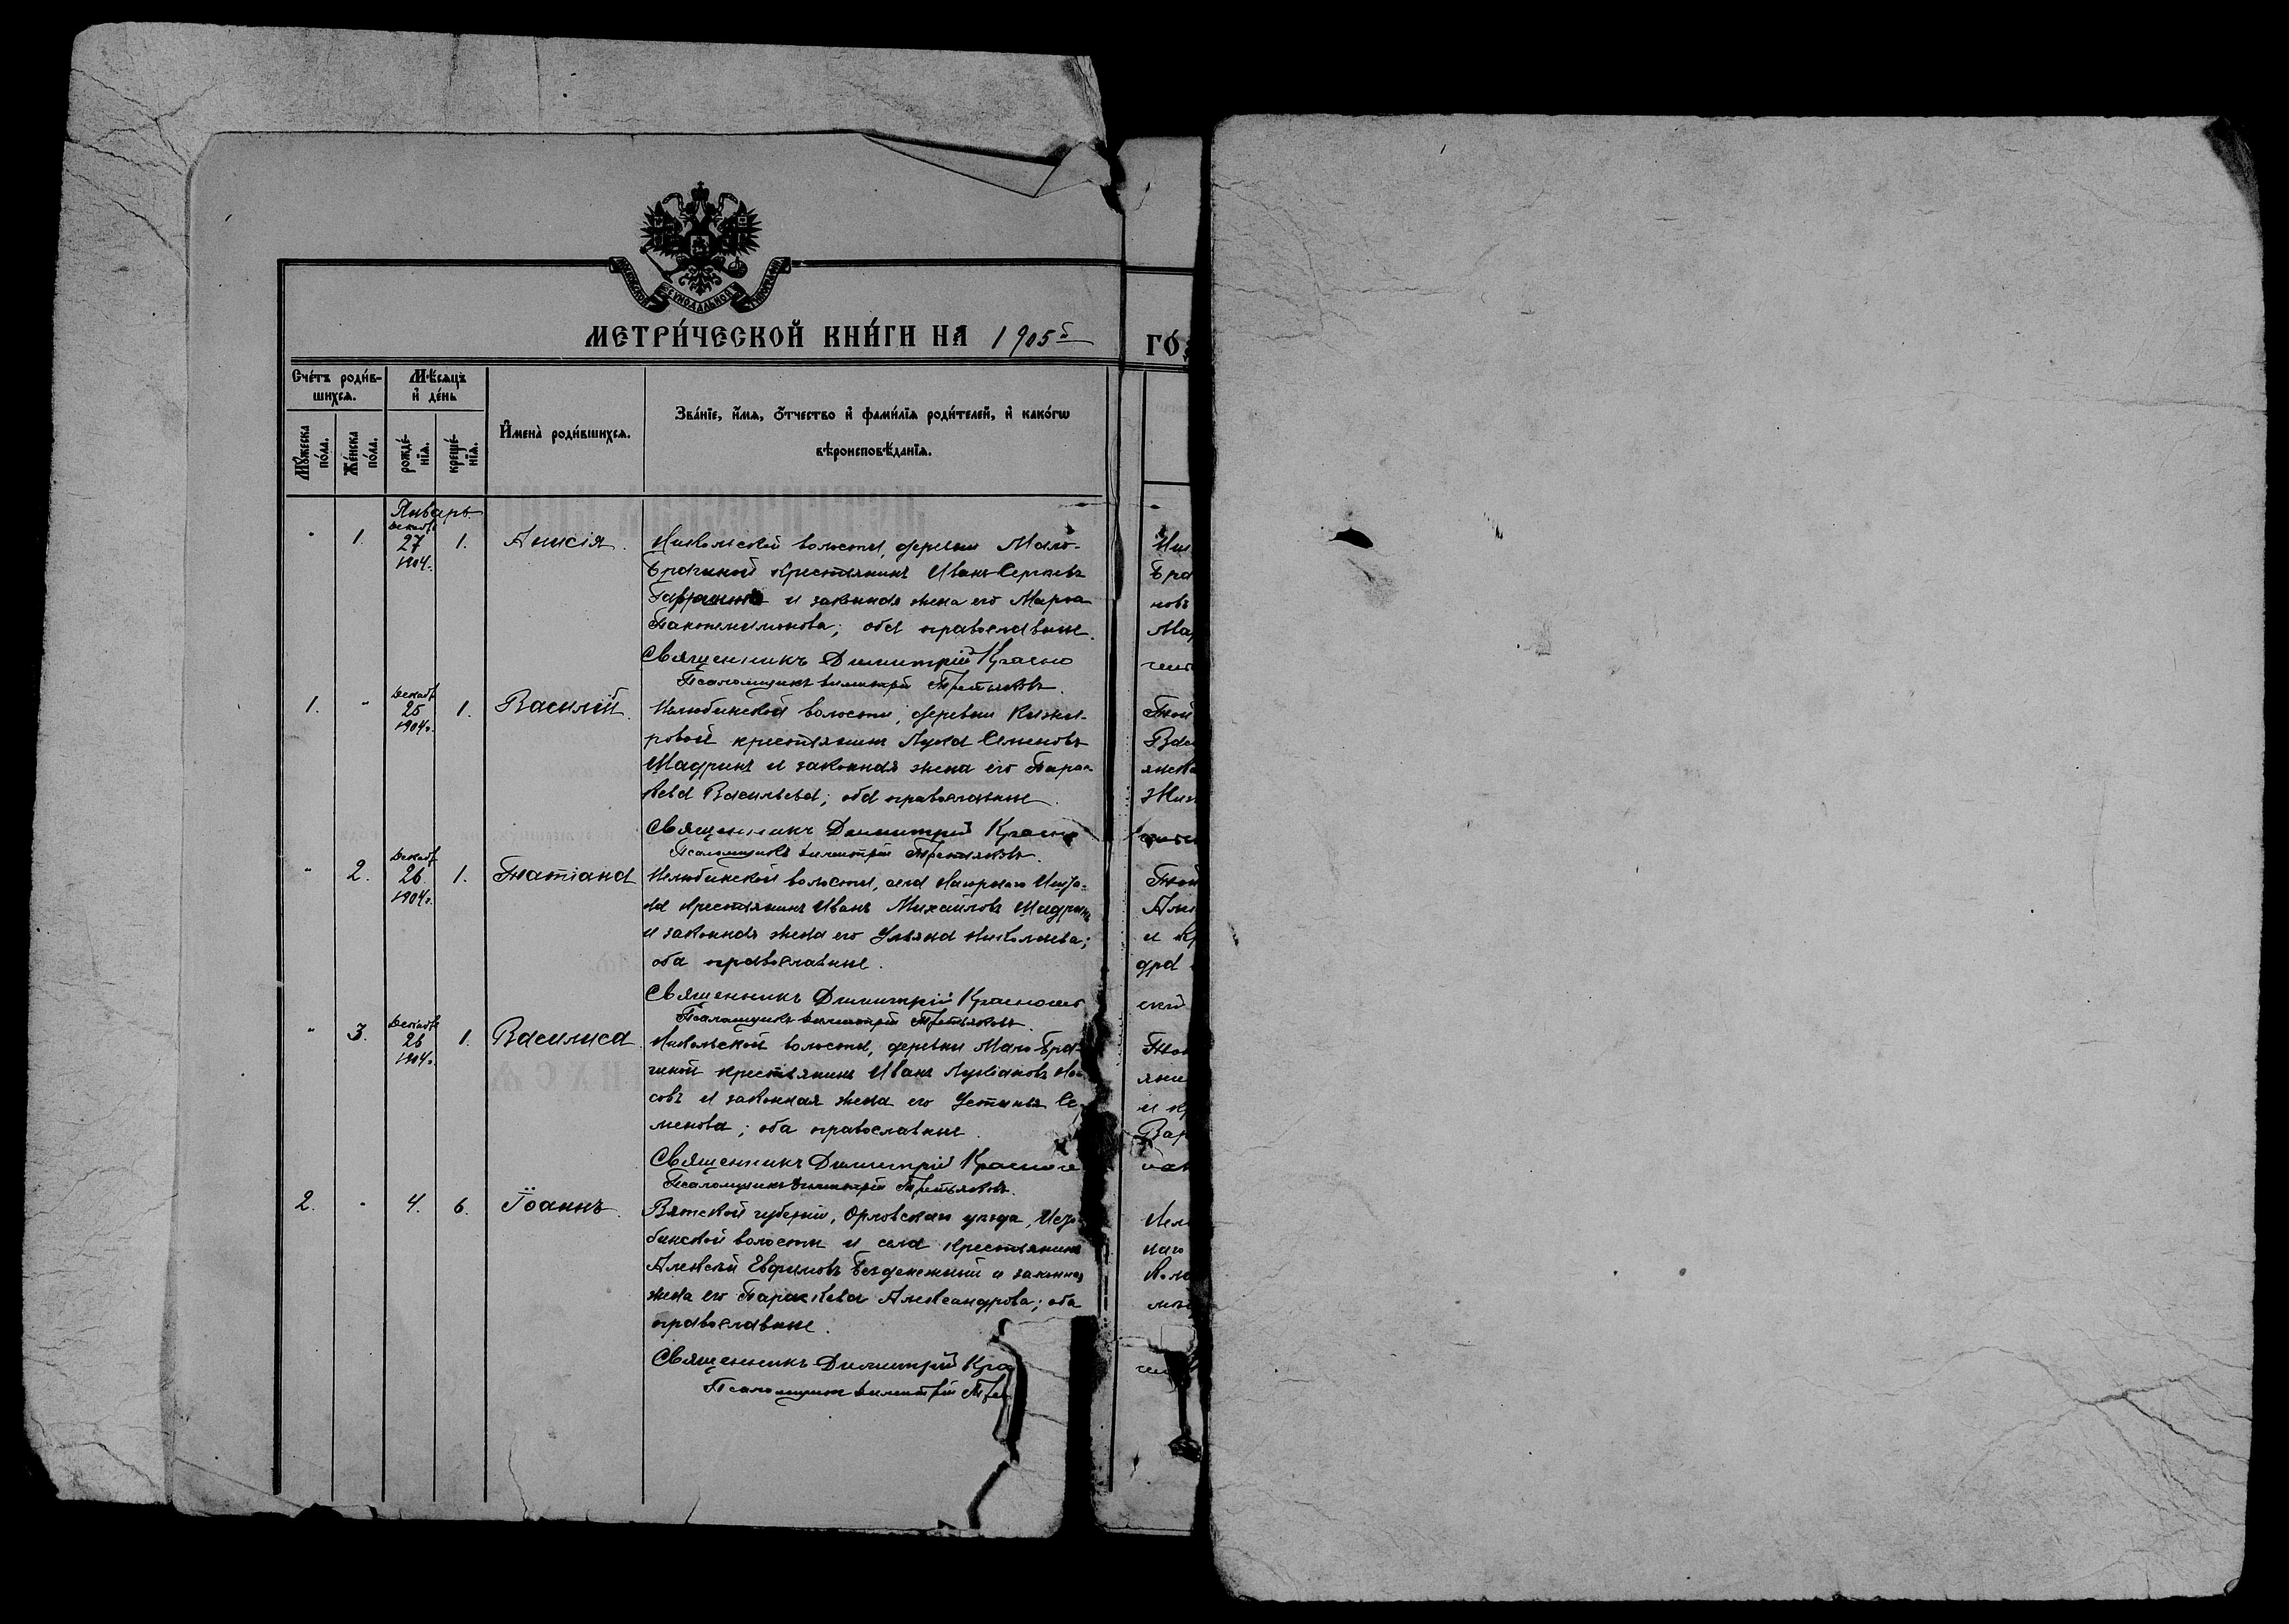 МОСКОВСКОЙ СѴНОДАЛЬНОЙ ТИПОГРАФІИ
МЕТРИ́ЧЕСКОЙ КНИ́ГИ НА 1905й ГО́
Сче́тъ роди́вшихся.
Мѣ́сяцъ и де́нь
И҆мена̀ роди́вшихся.
Зва́нїе, и҆́мя, ѻ҆́тчество и҆ фами́лїя роди́телей, и҆ како́гѡ
вѣроисповѣ́данїя.
Мꙋ́жеска по́ла.
Же́нска по́ла.
рожде́нїя.
креще́нїя.
Январь
" 1. Декабр 27 1904г. 1. Анисія.
Никольской волости, деревни Мало-
Брагиной крестьянинъ Иванъ Сергѣевъ
и законная жена его Марѳа
Пантелимонова; оба православные.
Священникъ Димитрій Красно
Псаломщикъ Димитрій Третьяковъ.
1. " Декабр 25 1904г. 1. Василій.
Нелюбинской волости, деревни Кижи-
ровой крестьянинъ Лука Семеновъ
Шадринъ и законная жена его Парас-
кева Васильева; оба православные.
Священникъ Димитрій Красно
Псаломщикъ Димитрій Третьяковъ.
" 2. Декабр 26 1904г. 1. Татіана
Нелюбинской волости, села Нагорнаго Ишта-
на крестьянинъ Иванъ Михаиловъ Шадринъ
и законная жена его Ульяна Николаева;
оба православные.
Священникъ Димитрій Красно
Псаломщикъ Димитрій Третьяковъ.
" 3. Декабр 26 1904г. 1. Василиса
Никольской волости, деревни Мало-Бра-
гиной крестьянинъ Иванъ Лукіановъ Но-
совъ и законная жена его Устинья Се-
менова; оба православные.
Священникъ Димитрій Красно
Псаломщикъ Димитрій Третьяковъ.
2. " 4. 6. Іоаннъ.
Вятской губерніи, Орловскаго уѣзда,
бинской волости и села крестьянинъ
Алексѣй Евфимовъ Безденежный и законная
жена его Параскева Александрова; оба
православные.
Священникъ Димитрій Кра
Псаломщикъ Димитрій Тре